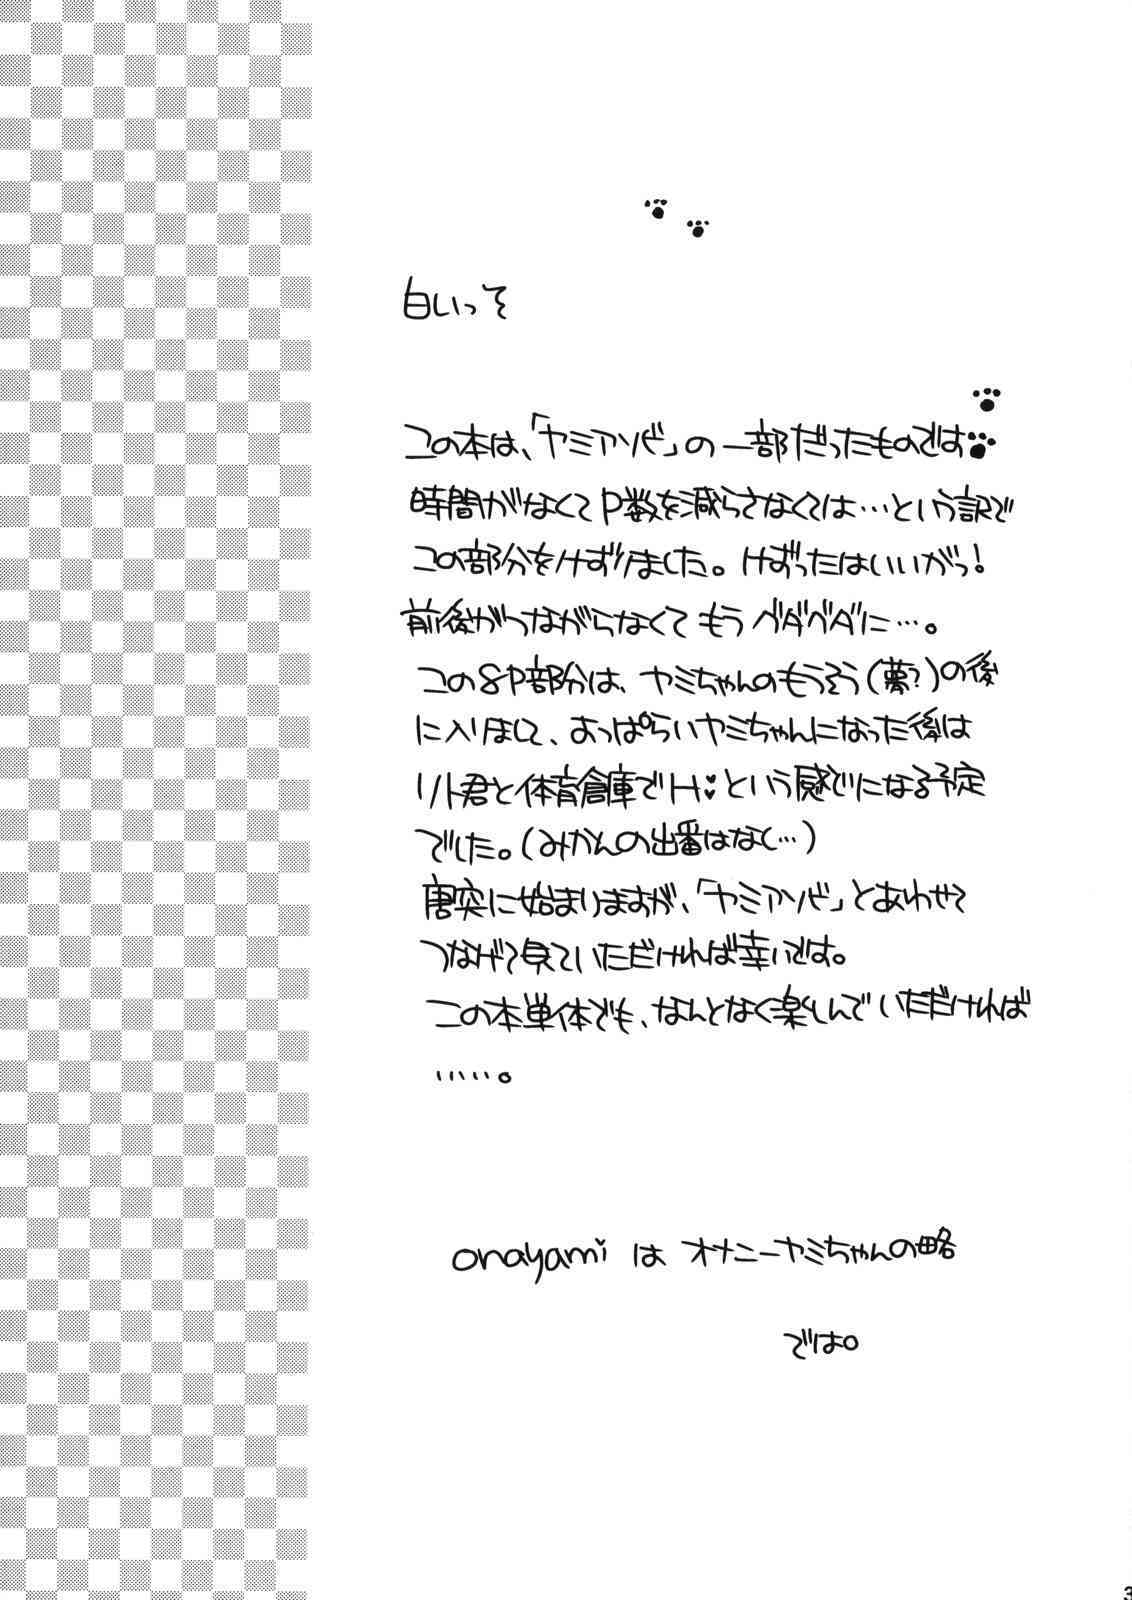 白いっそ
この本は、「ヤミアソビ」の一部だったものです
時間がなくてP数を減らさなくては…という訳で
この部分をけずりました。けずったはいいがっ!
前後がつながらなくてもうグダグダに…。
この8P部分は、ヤミちゃんのもうそう(夢?)の後
に入りまして、よっぱらいヤミちゃんになった後は
リト君と体育倉庫でH♥という感じになる予定
でした。(みかんの出番はなし…)
唐突に始まりますが、「ヤミアソビ」とあわせて
つなげて見ていただければ幸いです。
この本単体でも、なんとなく楽しんでいただければ
……。
onayamiはオナニーヤミちゃんの略
では。
3